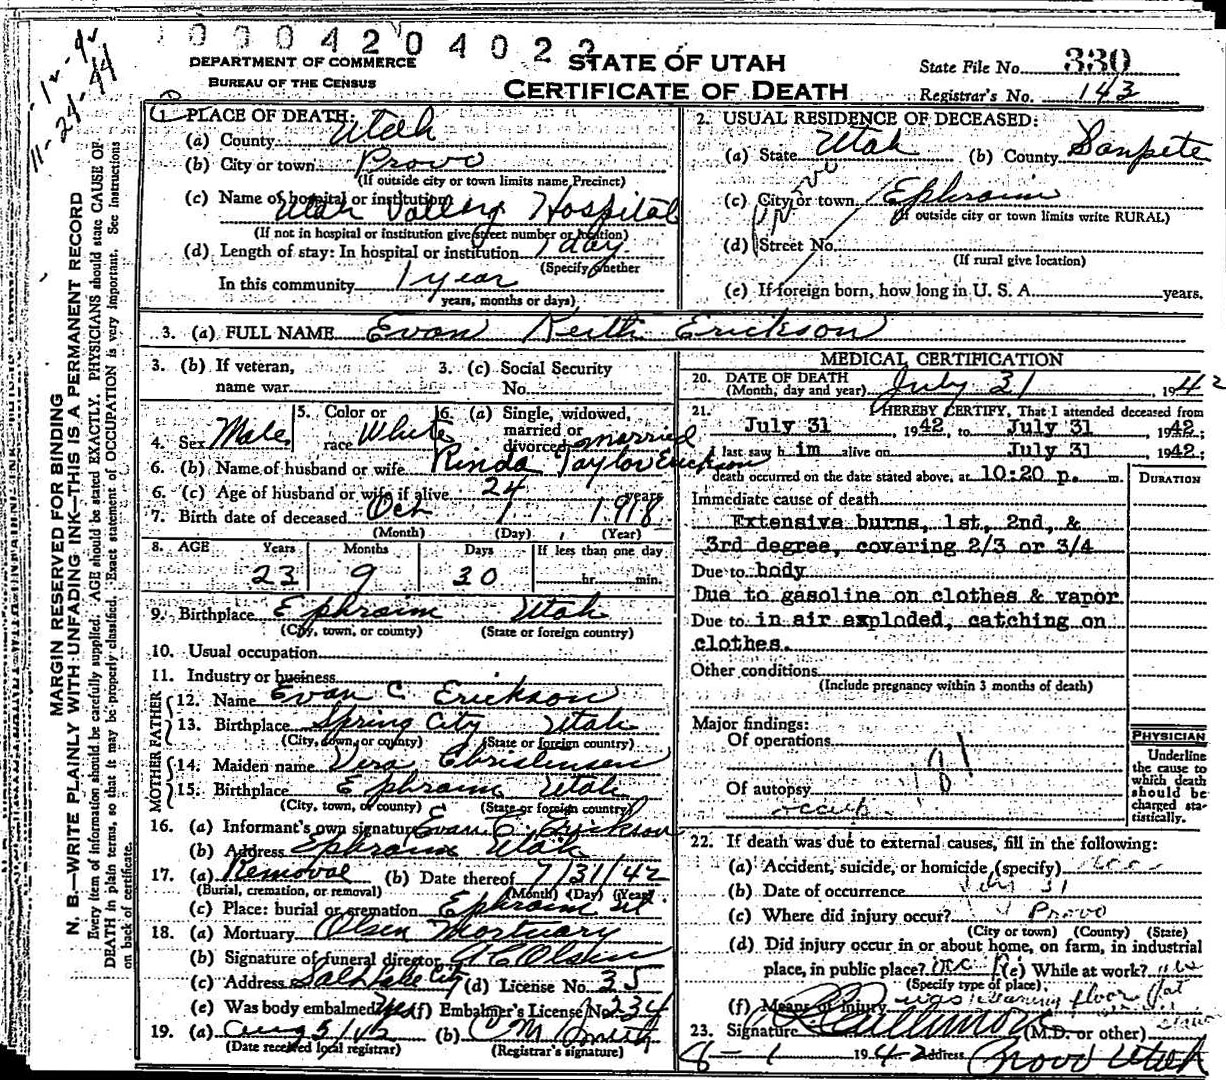 0004204022
11-21-44
DEPARTMENT OF COMMERCE
BUREAU OF THE CENSUS
STATE OF UTAH
CERTIFICATE OF DEATH
State File No. 330
Registrar's No. 143
MARGIN RESERVED FOR BINDING
N. B.—WRITE PLAINLY WITH UNFADING INK—THIS IS A PERMANENT RECORD
Every item of information should be carefully supplied. AGE should be stated EXACTLY. PHYSICIANS should state CAUSE OF
DEATH in plain terms, so that it may be properly classified. Exact statement of OCCUPATION is very important. See Instructions
on back of certificate.
1. PLACE OF DEATH:
(a) County Utah
(b) City or town Provo
(If outside city or town limits name Precinct)
(c) Name of hospital or institution
Utah Valley Hospital
(If not in hospital or institution give street number or location)
(d) Length of stay: In hospital or institution 1 day
(Specify whether
In this community 1 year
years, months or days)
2. USUAL RESIDENCE OF DECEASED:
(a) State Utah (b) County Sanpete
(c) City or town Ephraim
(If outside city or town limits write RURAL)
Provo
(d) Street No.
(If rural give location)
(e) If foreign born, how long in U. S. A. years.
3. (a) FULL NAME Evan Keith Erickson
3. (b) If veteran,
name war
3. (c) Social Security
No.
4. Sex Male
5. Color or
race White
6. (a) Single, widowed,
married or
divorced married
6. (b) Name of husband or wife Rinda Taylor Erickson
6. (c) Age of husband or wife if alive 24 years
7. Birth date of deceased Oct 1 1918
(Month) (Day) (Year)
8. AGE Years Months Days If less than one day
23 9 30 hr. min.
9. Birthplace Ephraim Utah
(City, town, or county) (State or foreign country)
10. Usual occupation
11. Industry or business
FATHER
12. Name Evan C. Erickson
13. Birthplace Spring City Utah
(City, town, or county) (State or foreign country)
MOTHER
14. Maiden name Vera Christensen
15. Birthplace Ephraim Utah
(City, town, or county) (State or foreign country)
16. (a) Informant's own signature Evan C. Erickson
(b) Address Ephraim Utah
17. (a) Removal (b) Date thereof 7/31/42
(Burial, cremation, or removal) (Month) (Day) (Year)
(c) Place: burial or cremation Ephraim Ut
18. (a) Mortuary Olsen Mortuary
(b) Signature of funeral director Olsen
(c) Address Salt Lake City (d) License No. 35
(e) Was body embalmed? Yes (f) Embalmer's License No. 234
19. (a) Aug 5/42 (b) C M Smith
(Date received local registrar) (Registrar's signature)
MEDICAL CERTIFICATION
20. DATE OF DEATH
(Month, day and year) July 31, 1942
21. I HEREBY CERTIFY, That I attended deceased from
July 31, 1942, to July 31, 1942;
I last saw him alive on July 31, 1942;
death occurred on the date stated above, at 10:20 p. m.
DURATION
Immediate cause of death
Extensive burns, 1st, 2nd, &
3rd degree, covering 2/3 or 3/4
Due to body
Due to gasoline on clothes & vapor
Due to in air exploded, catching on
clothes.
Other conditions
(Include pregnancy within 3 months of death)
Major findings:
Of operations
181
Of autopsy
occup.
PHYSICIAN
Underline
the cause to
which death
should be
charged sta-
tistically.
22. If death was due to external causes, fill in the following:
(a) Accident, suicide, or homicide (specify)
(b) Date of occurrence July 31
(c) Where did injury occur? Provo
(City or town) (County) (State)
(d) Did injury occur in or about home, on farm, in industrial
place, in public place? (e) While at work?
(Specify type of place)
(f) Means of injury was cleaning floor
23. Signature (M.D. or other)
8-1 1942 Address Provo Utah